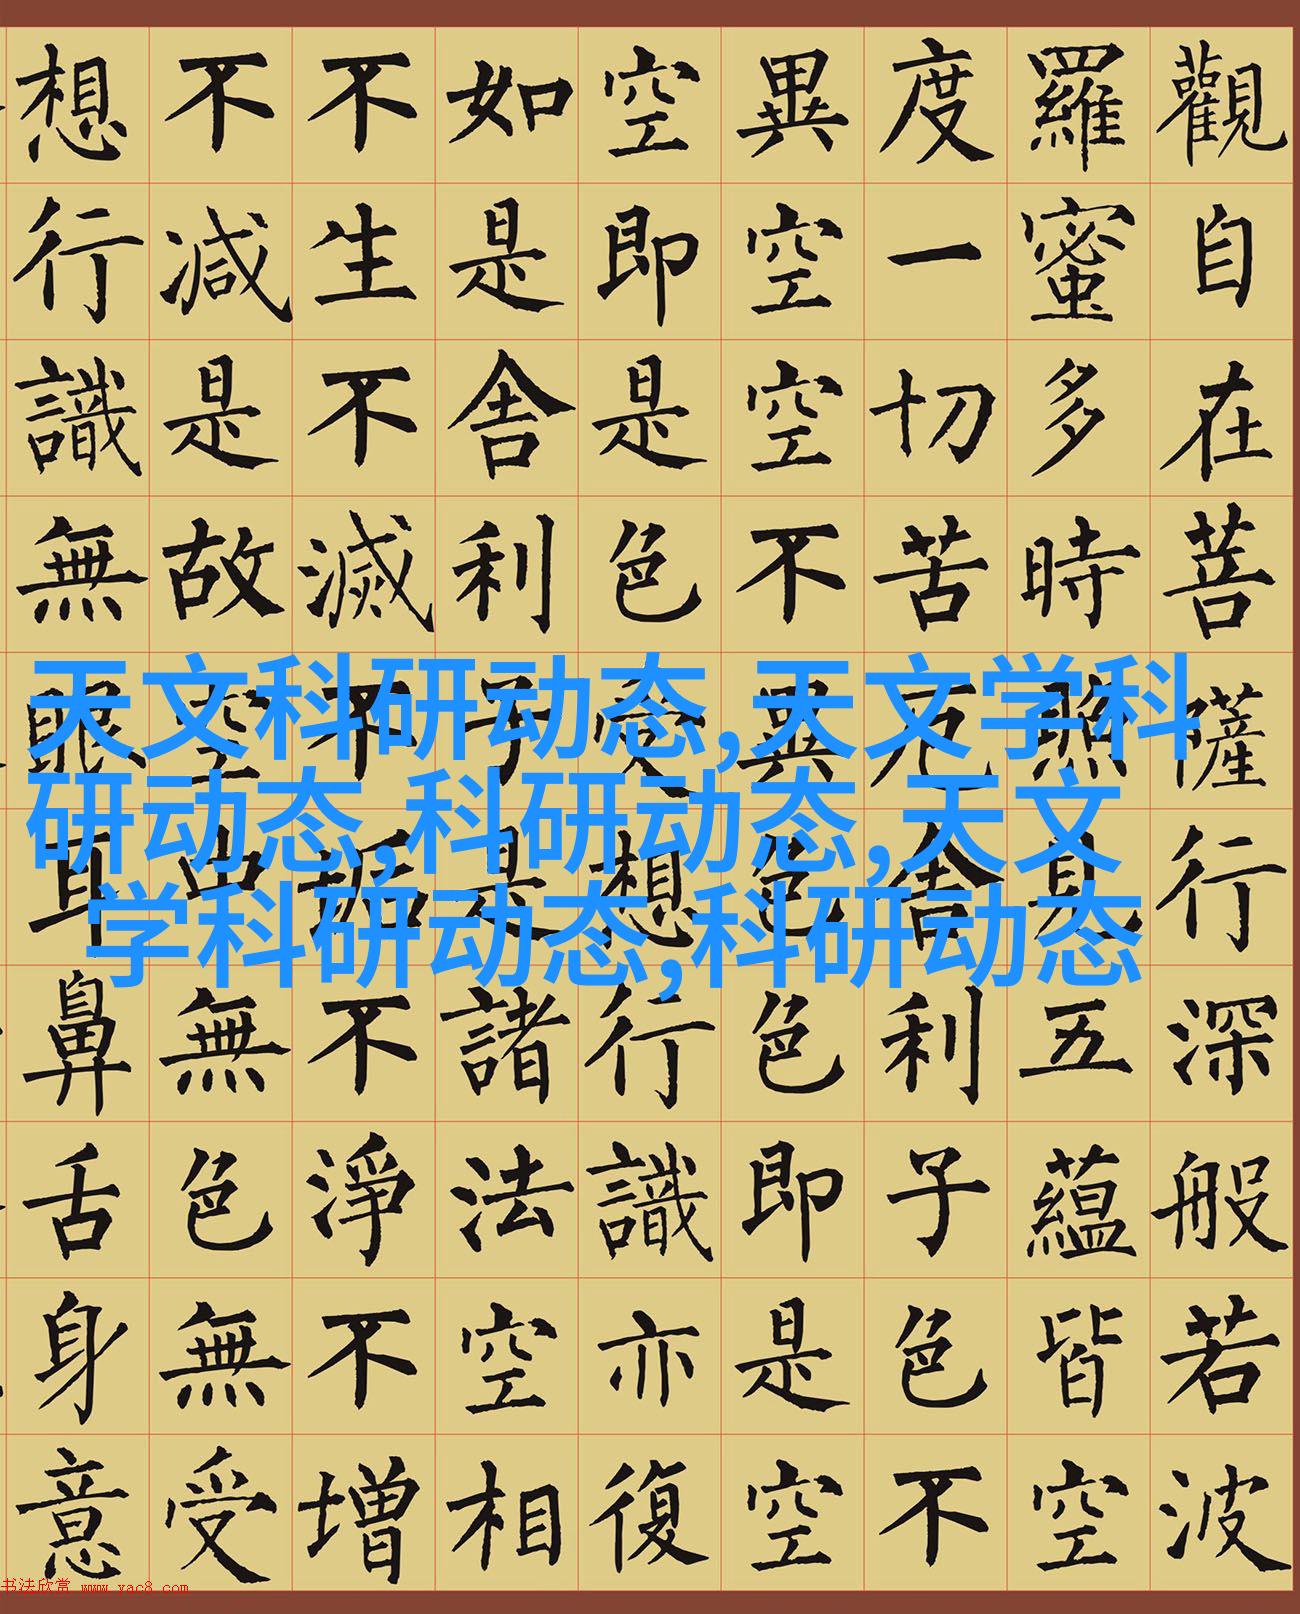 觀自在菩薩行深般若波
羅蜜多時照見五蘊皆空
度一切苦厄舍利子色不
異空空不異色色即是空
空即是色受想行識亦復
如是舍利子是諸法空相
不生不滅不垢不淨不增
不減是故空中無色無受
想行識無眼耳鼻舌身意
天文科研动态,天文学科
研动态,科研动态,天文
学科研动态,科研动态
书法欣赏 www.yac8.com